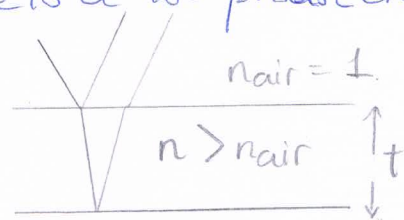 nair = 1
n > nair
t